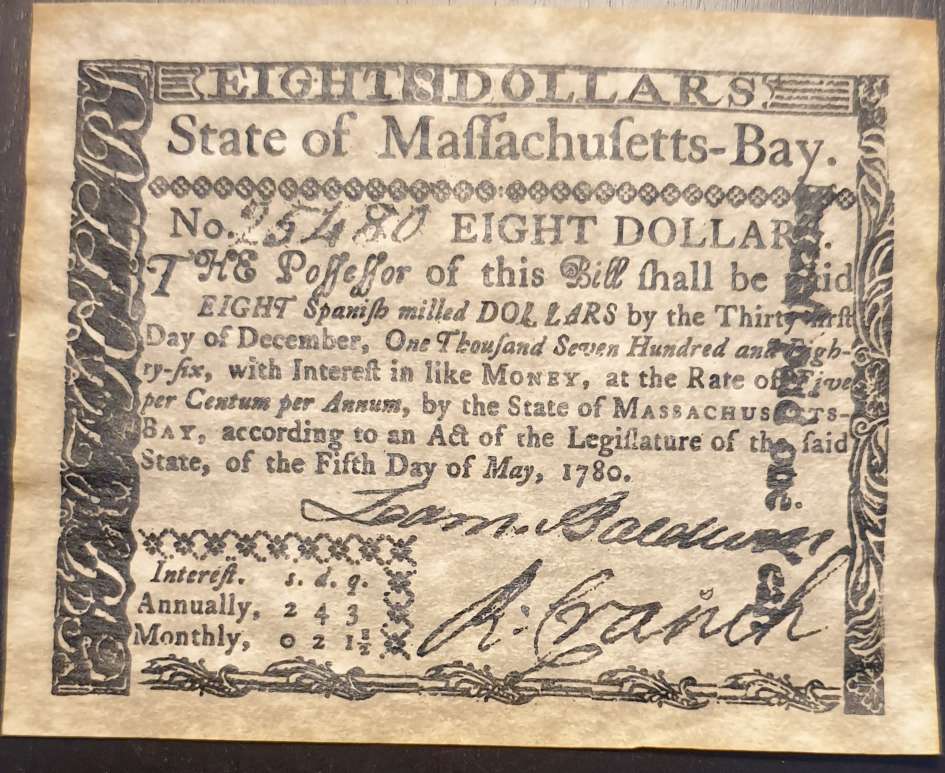 EIGHT 8 DOLLARS
State of Maſſachuſetts-Bay.
No. 25480 EIGHT DOLLARS.
THE Poſſeſſor of this Bill ſhall be paid
EIGHT Spaniſh milled DOLLARS by the Thirty-firſt
Day of December, One Thouſand Seven Hundred and Eigh-
ty-ſix, with Intereſt in like MONEY, at the Rate of Five
per Centum per Annum, by the State of MASSACHUSETTS-
BAY, according to an Act of the Legiſlature of the ſaid
State, of the Fifth Day of May, 1780.
Loam. Baldwin
R: Cranch
Intereſt. s. d. q.
Annually, 2 4 3
Monthly, 0 2 1½